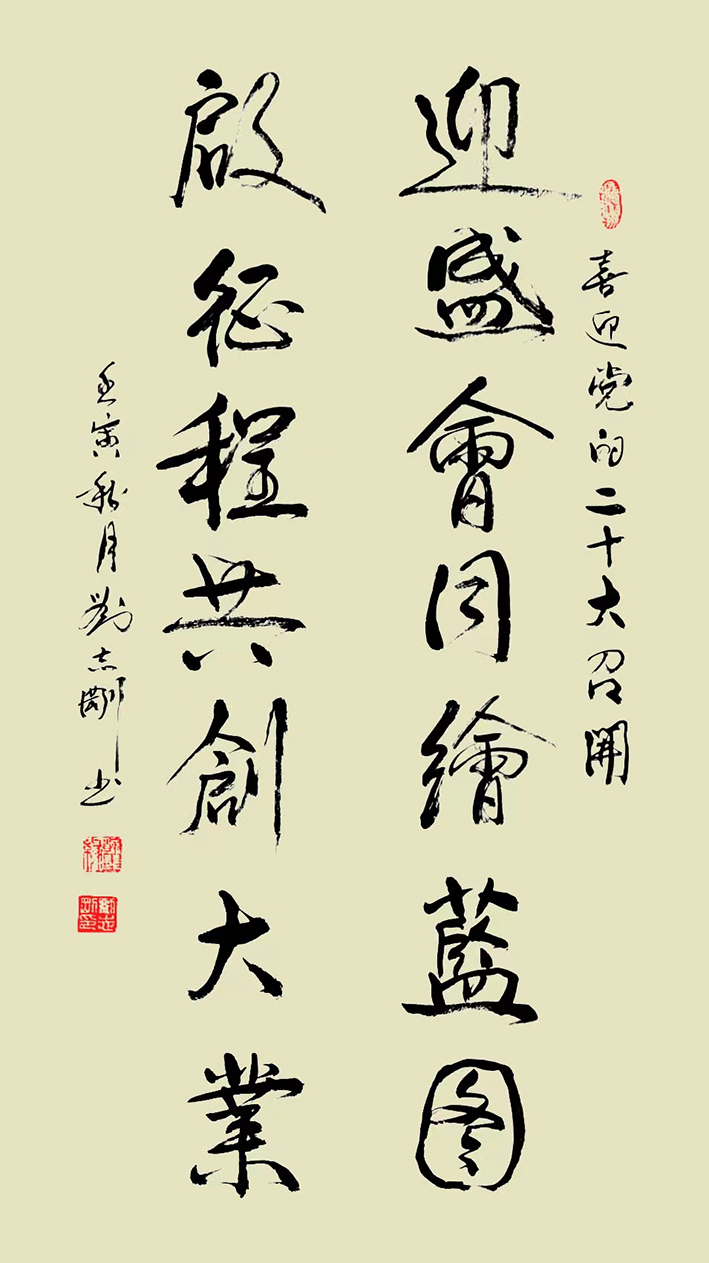 喜迎党的二十大召開
迎盛會同繪藍图
啟征程共創大業
壬寅秋月劉志剛书